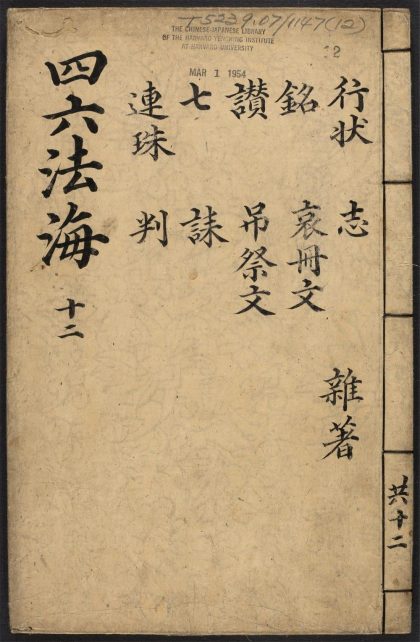 T5239.07/1147(12)
THE CHINESE-JAPANESE LIBRARY
OF THE HARVARD-YENCHING INSTITUTE
AT HARVARD UNIVERSITY
MAR 1 1954
12
行狀 志 雜著
銘 哀冊文
讃 吊祭文
七 誄
連珠 判
四六法海 十二
共十二